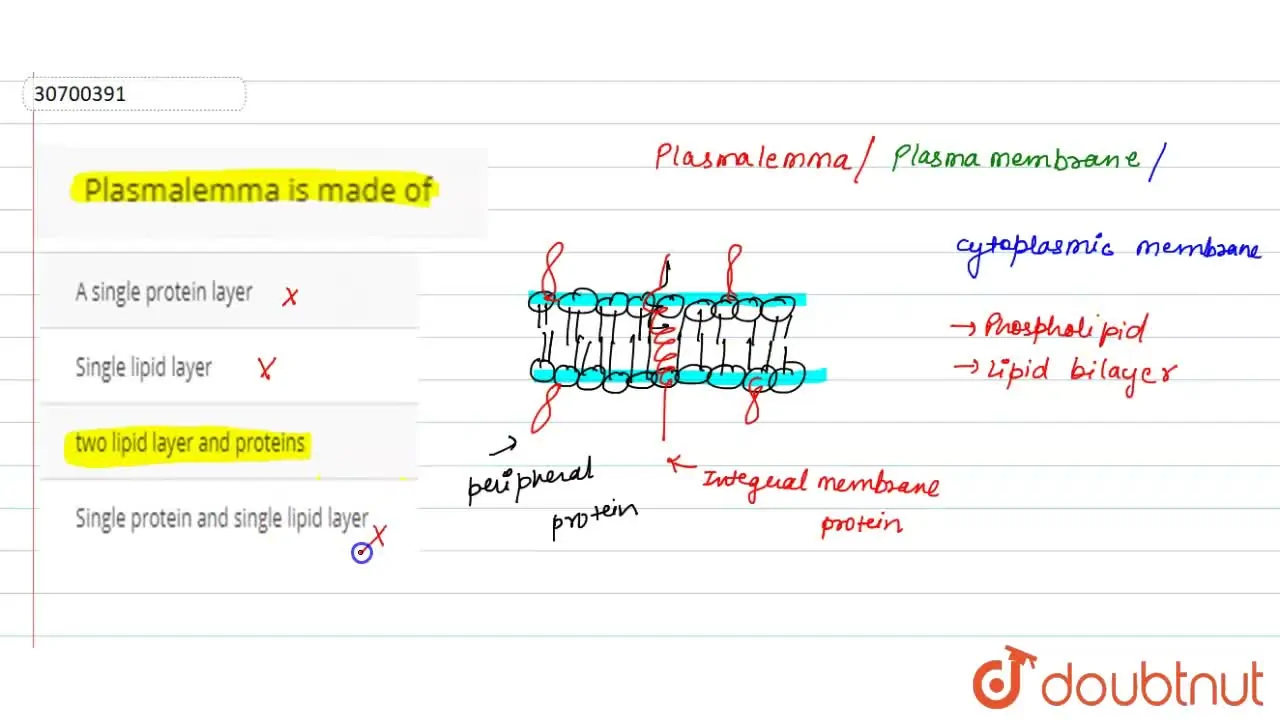 30700391
Plasmalemma is made of
A single protein layer X
Single lipid layer X
two lipid layer and proteins
Single protein and single lipid layer X
Plasmalemma / Plasma membrane /
cytoplasmic membrane
→ Phospholipid
→ Lipid bilayer
peripheral
protein
Integral membrane
protein
doubtnut